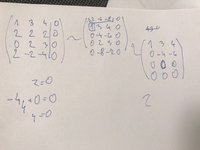 1 3 4 | 0
2 2 2 | 0
0 2 3 | 0
2 -2 -4 | 0
~
1 3 4 0
0 -4 -6 0
0 2 3 0
0 -8 -12 0
~
1 3 4
0 -4 -6
0 0 0
0 0 0
z=0
-4y+0=0
y=0